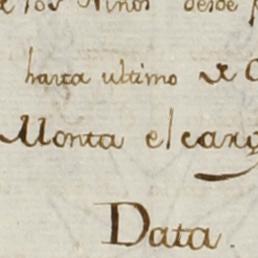 los Niños desde
harta ultimo de
Monta el carg
Data.